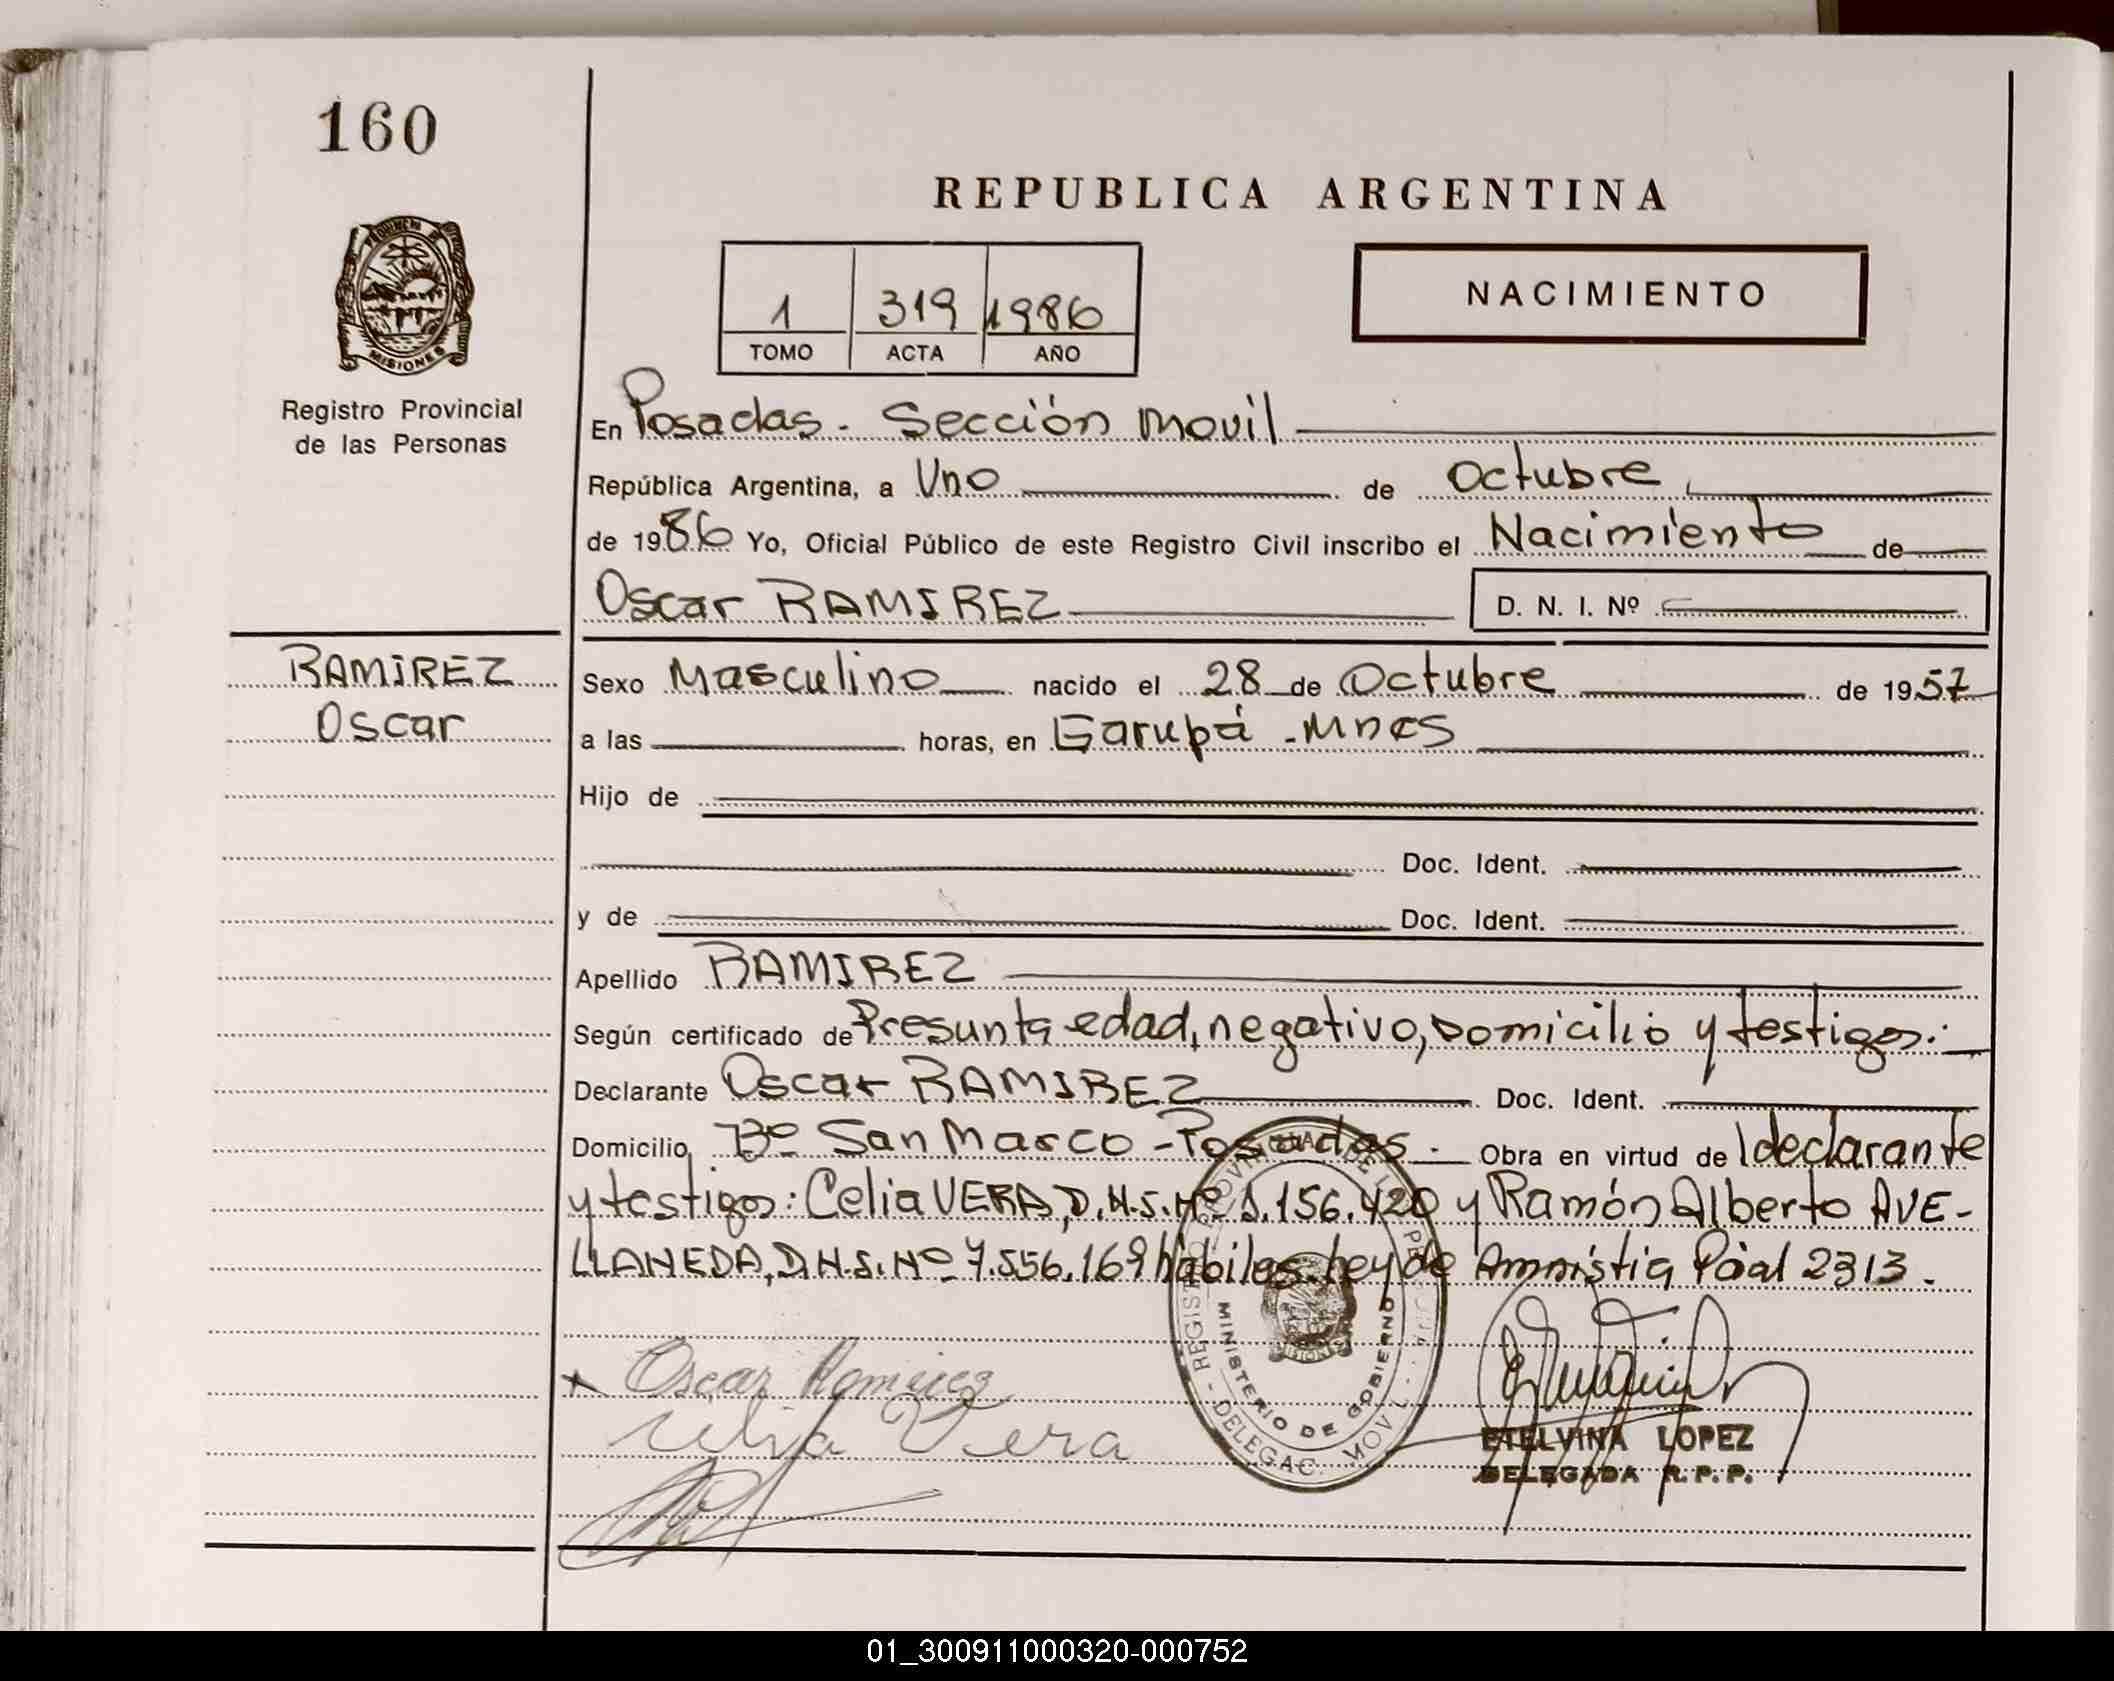 160
REPUBLICA ARGENTINA
PROVINCIA DE
MISIONES
Registro Provincial
de las Personas
1 319 1986
TOMO ACTA AÑO
NACIMIENTO
En Posadas. Sección movil
República Argentina, a Uno de Octubre
de 1986 Yo, Oficial Público de este Registro Civil inscribo el Nacimiento de
Oscar RAMIREZ D. N. I. Nº
RAMIREZ
Oscar
Sexo Masculino nacido el 28 de Octubre de 1957
a las horas, en Garupá - Mnes
Hijo de
Doc. Ident.
y de Doc. Ident.
Apellido RAMIREZ
Según certificado de Presunta edad, negativo, Domicilio y testigos.
Declarante Oscar RAMIREZ Doc. Ident.
Domicilio Bº San Marco - Posadas. Obra en virtud de declarante
y testigos: Celia VERA, D.N.I. Nº 1.156.420 y Ramón Alberto AVE-
LLANEDA, D.N.I. Nº 7.556.169 hábiles. Ley de Amnistia Pcial 2313.
REGISTRO PROVINCIAL DE LAS PERSONAS - DELEGAC. MOVIL
MINISTERIO DE GOBIERNO
MISIONES
Oscar Ramirez
Celia Vera
ETELVINA LOPEZ
DELEGADA R.P.P.
01_300911000320-000752